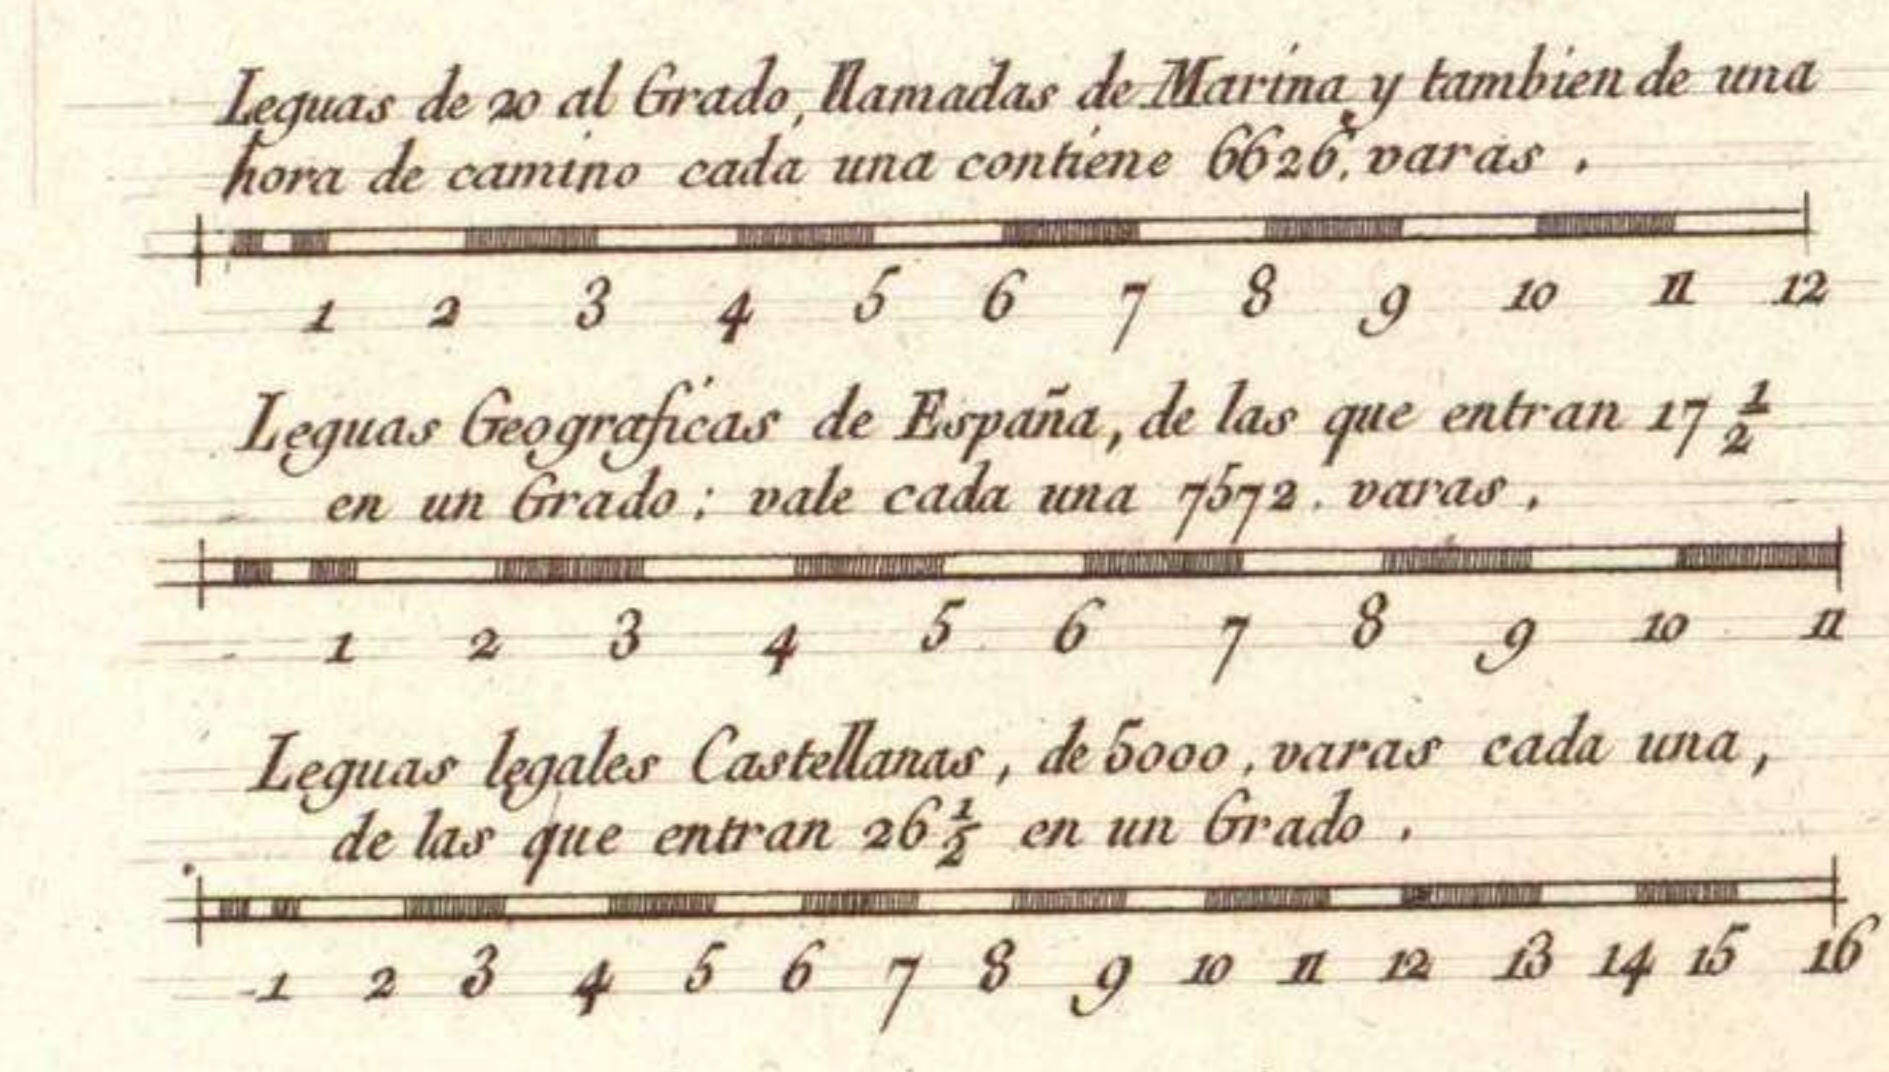 Leguas de 20 al Grado, llamadas de Marina, y tambien de una
hora de camino cada una contiene 6626. varas.
1 2 3 4 5 6 7 8 9 10 11 12
Leguas Geograficas de España, de las que entran 17 1/2
en un Grado: vale cada una 7572. varas.
1 2 3 4 5 6 7 8 9 10 11
Leguas legales Castellanas, de 5000. varas cada una,
de las que entran 26 1/2 en un Grado.
1 2 3 4 5 6 7 8 9 10 11 12 13 14 15 16